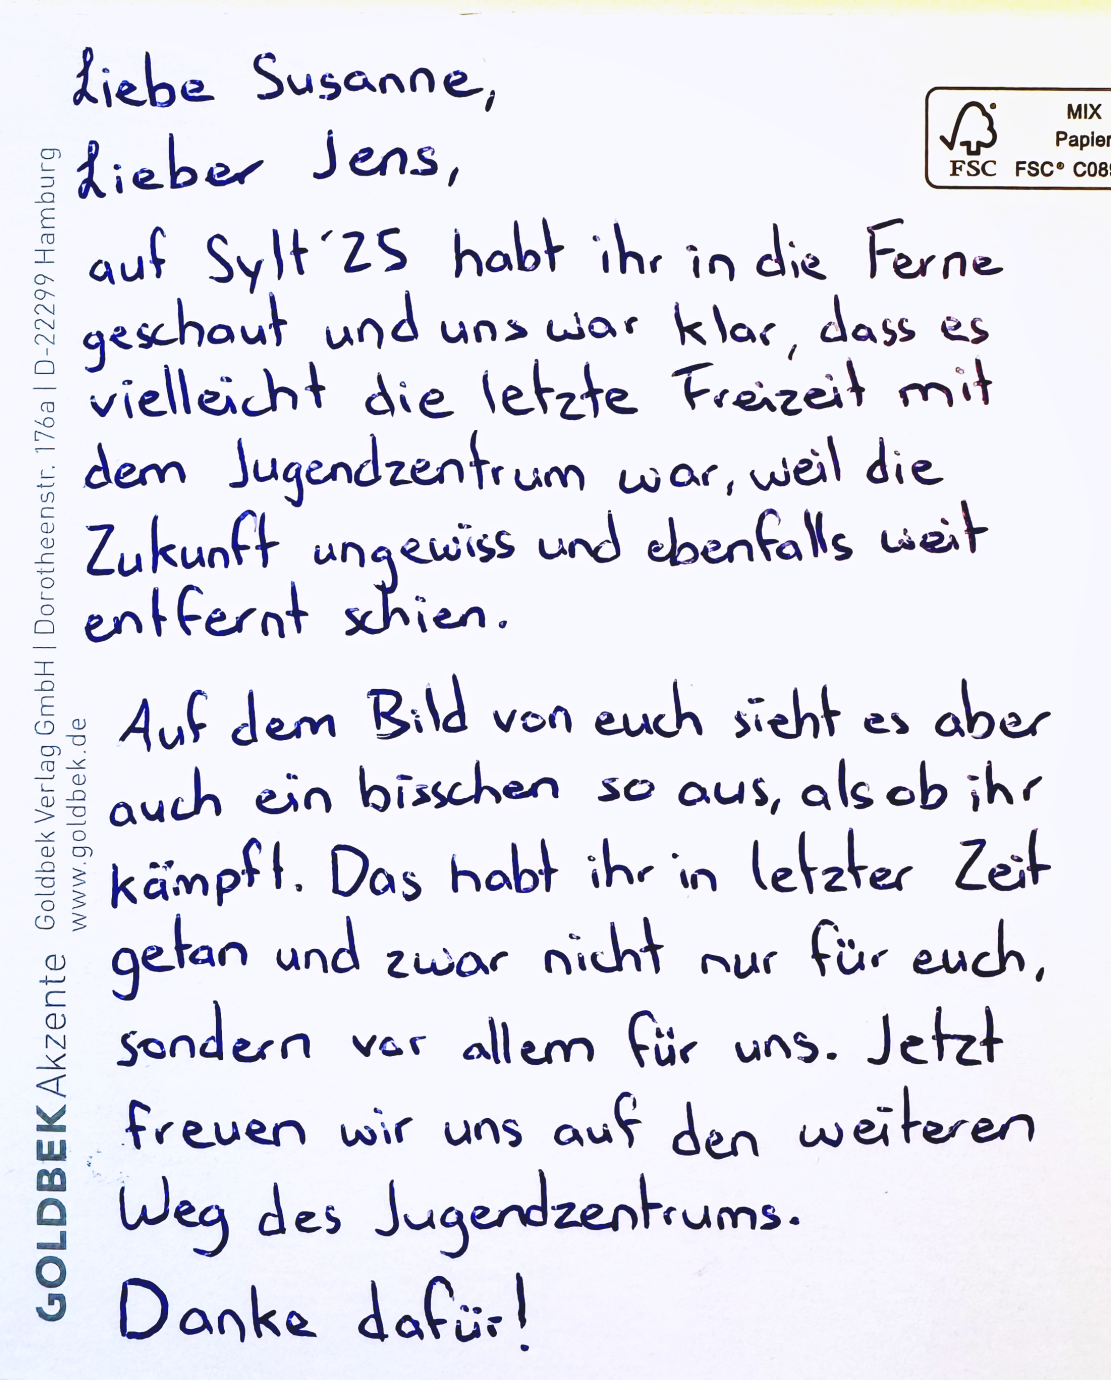 Liebe Susanne,
Lieber Jens,
auf Sylt '25 habt ihr in die Ferne
geschaut und uns war klar, dass es
vielleicht die letzte Freizeit mit
dem Jugendzentrum war, weil die
Zukunft ungewiss und ebenfalls weit
entfernt schien.
Auf dem Bild von euch sieht es aber
auch ein bisschen so aus, als ob ihr
kämpft. Das habt ihr in letzter Zeit
getan und zwar nicht nur für euch,
sondern vor allem für uns. Jetzt
freuen wir uns auf den weiteren
Weg des Jugendzentrums.
Danke dafür!
GOLDBEK Akzente Goldbek Verlag GmbH | Dorotheenstr. 176a | D-22299 Hamburg
www.goldbek.de
MIX
Papier
FSC FSC® C089